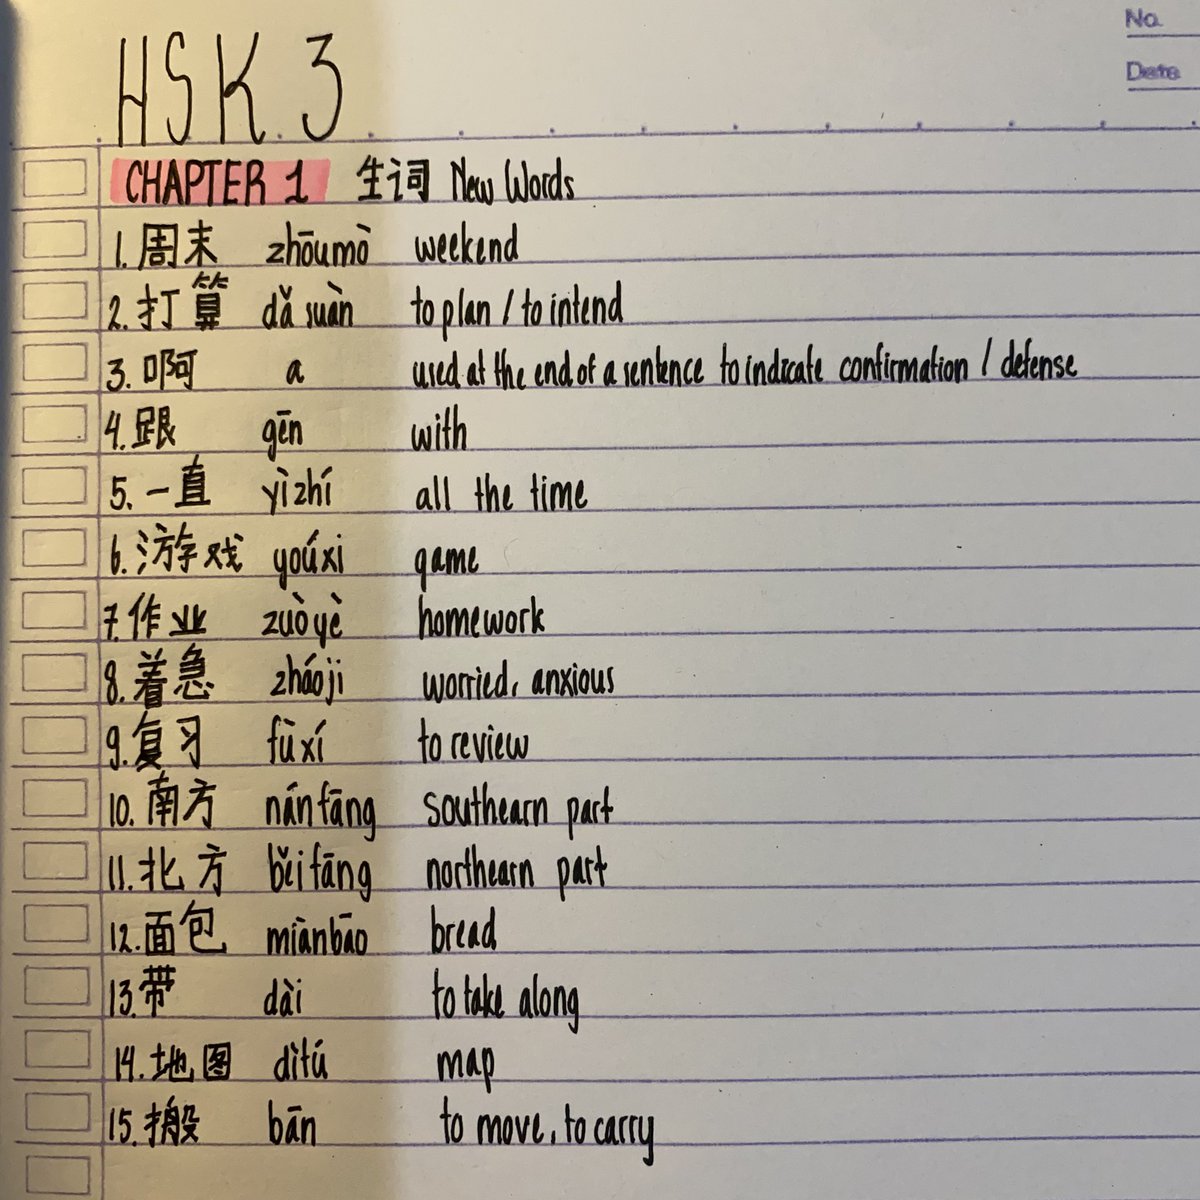 No.
Date
HSK 3
CHAPTER 1 生词 New Words
1. 周末 zhōumò weekend
2. 打算 dǎ suàn to plan / to intend
3. 啊 a used at the end of a sentence to indicate confirmation / defense
4. 跟 gēn with
5. 一直 yìzhí all the time
6. 游戏 yóuxi game
7. 作业 zuòyè homework
8. 着急 zháoji worried, anxious
9. 复习 fùxí to review
10. 南方 nánfāng southearn part
11. 北方 běifāng northearn part
12. 面包 miànbāo bread
13. 带 dài to take along
14. 地图 dìtú map
15. 搬 bān to move, to carry